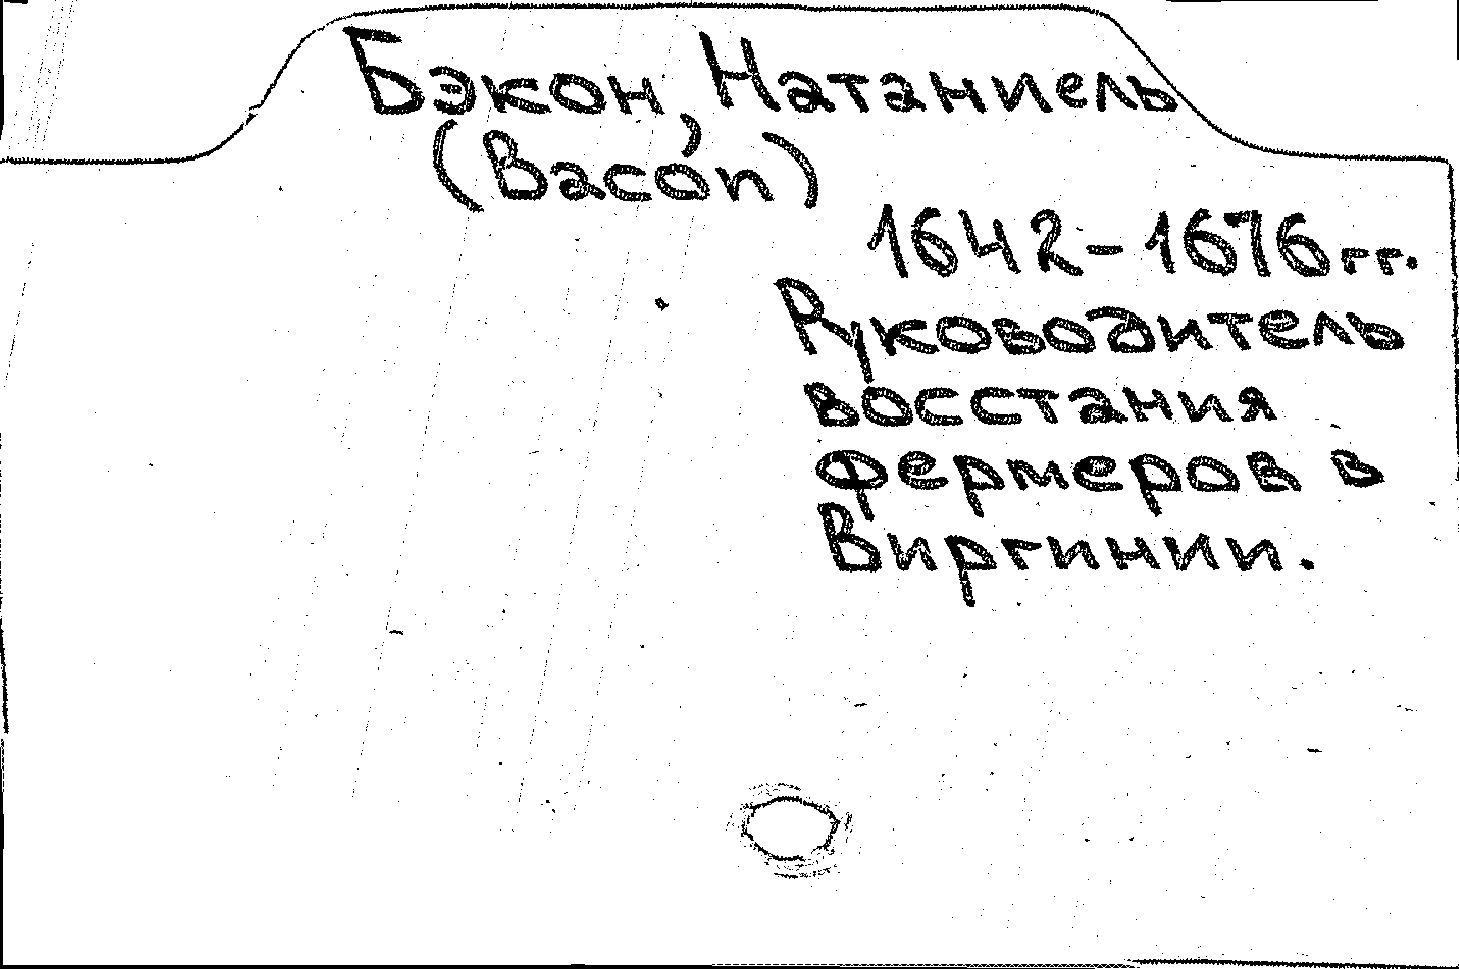 Бэкон, Натаниель
(Bacon)
1642-1676 гг.
Руководитель
восстания
фермеров в
Виргинии.